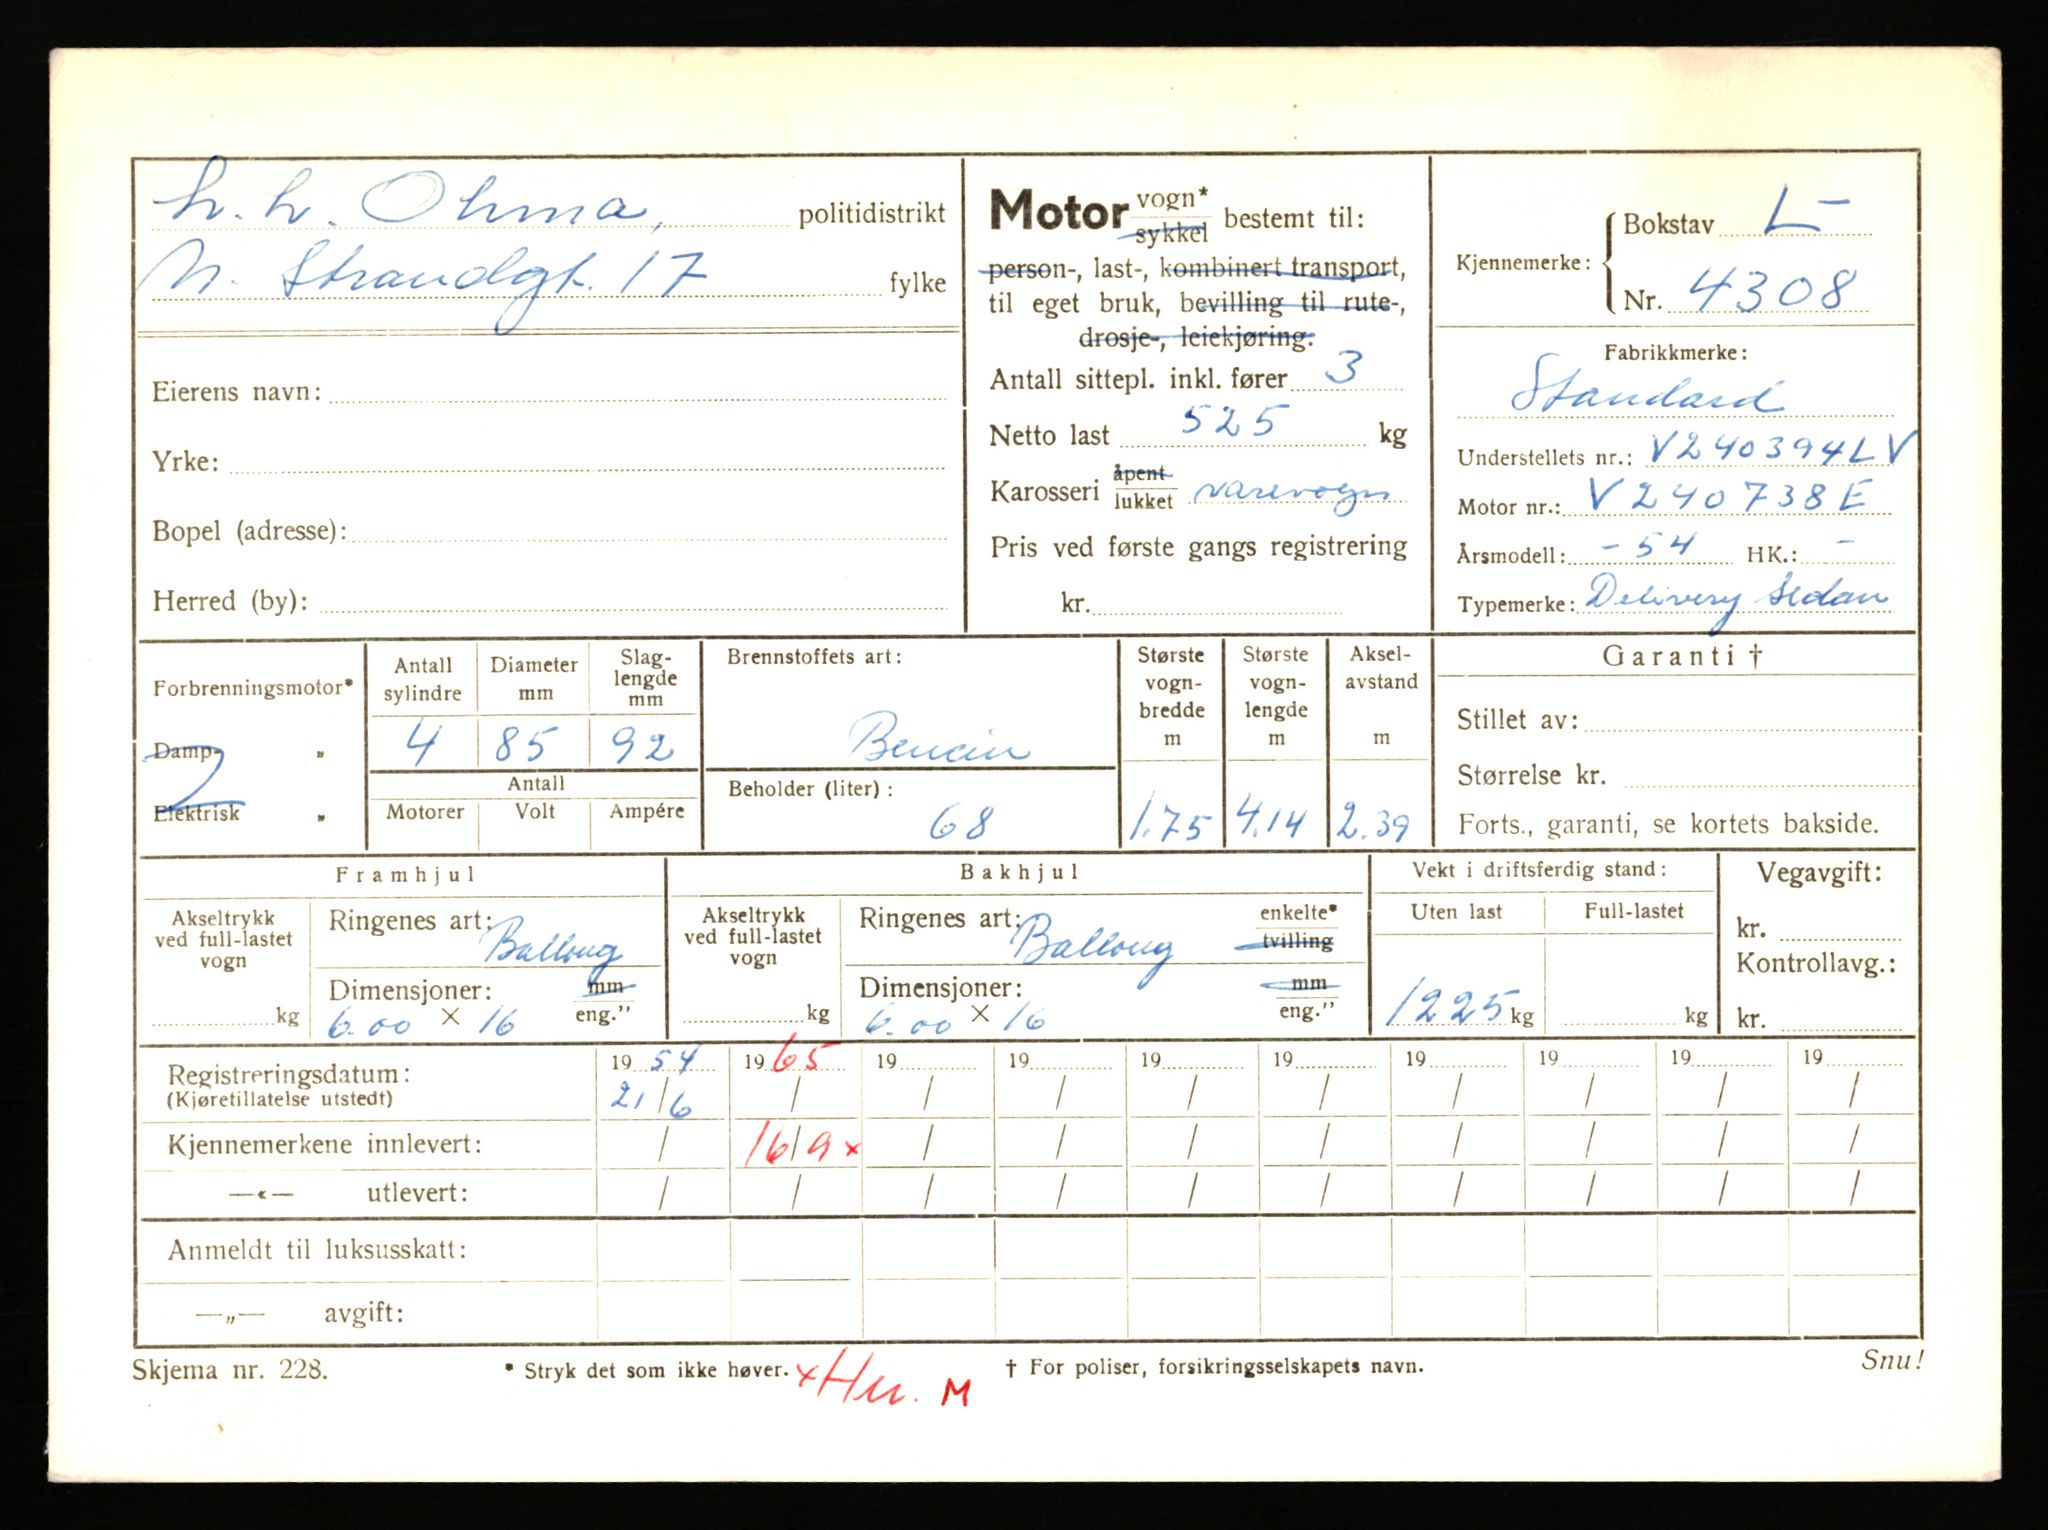 h. h. Ohma, politidistrikt
N. Strandgt. 17 fylke
Eierens navn:
Yrke:
Bopel (adresse):
Herred (by):
Motor vogn* sykkel bestemt til:
person-, last-, kombinert transport,
til eget bruk, bevilling til rute-,
drosje-, leiekjøring.
Antall sittepl. inkl. fører 3
Netto last 525 kg
Karosseri åpent lukket varevogn
Pris ved første gangs registrering
kr.
Kjennemerke: Bokstav L-
Nr. 4308
Fabrikkmerke:
Standard
Understellets nr.: V240394LV
Motor nr.: V240738E
Årsmodell: -54 HK.: -
Typemerke: Delivery Sedan
Forbrenningsmotor*
Damp- „
Elektrisk „
Antall sylindre Diameter mm Slaglengde mm
4 85 92
Antall
Motorer Volt Ampére
Brennstoffets art:
Bencin
Beholder (liter):
68
Største vognbredde m Største vognlengde m Akselavstand m
1.75 4.14 2.39
Garanti †
Stillet av:
Størrelse kr.
Forts., garanti, se kortets bakside.
Framhjul
Akseltrykk ved full-lastet vogn
kg
Ringenes art: Ballong
Dimensjoner: mm
6.00 × 16 eng."
Bakhjul
Akseltrykk ved full-lastet vogn
kg
Ringenes art: Ballong enkelte* tvilling
Dimensjoner: mm
6.00 × 16 eng."
Vekt i driftsferdig stand:
Uten last Full-lastet
1225 kg kg
Vegavgift:
kr.
Kontrollavg.:
kr.
Registreringsdatum: 19 54 19 65 19 19 19 19 19 19 19 19
(Kjøretillatelse utstedt) 21/6 / / / / / / / / /
Kjennemerkene innlevert: / 16/9 x / / / / / / / /
—«— utlevert: / / / / / / / / / /
Anmeldt til luksusskatt:
—„— avgift:
Skjema nr. 228. * Stryk det som ikke høver. x Hu. M † For poliser, forsikringsselskapets navn. Snu!